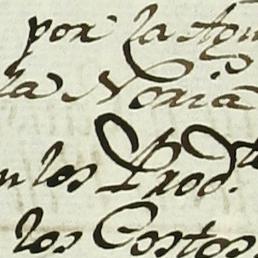 por la Agu
la Noria
n los Prod.to
los Costos